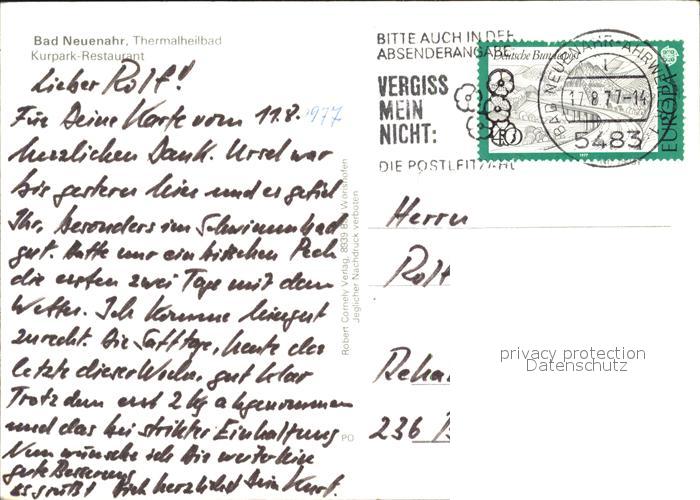 Bad Neuenahr, Thermalheilbad
Kurpark-Restaurant
Lieber Rolf!
Für Deine Karte vom 11.8. 1977
herzlichen Dank. Ursel war
bis gestern hier und es gefiel
Ihr, besonders im Schwimmbad
gut. Hatte nur ein bisschen Pech
die ersten zwei Tage mit dem
Wetter. Ich komme hier gut
zurecht. Die Safttage, heute der
letzte dieser Woche, gut klar
Trotzdem erst 2 kg abgenommen
und das bei strikter Einhaltung
Nun wünsche ich Dir weiterhin
gute Besserung
es grüßt Dich herzlichst Dein Kurt.
Robert Cornely Verlag, 8939 Bad Wörishofen
Jeglicher Nachdruck verboten
PO
BITTE AUCH IN DER
ABSENDERANGABE:
VERGISS
MEIN
NICHT:
DIE POSTLEITZAHL
Deutsche Bundespost
EUROPA
1977
BAD NEUENAHR-AHRW
17.8.77-14
5483
Herrn
Rolf
Reha
236
privacy protection
Datenschutz